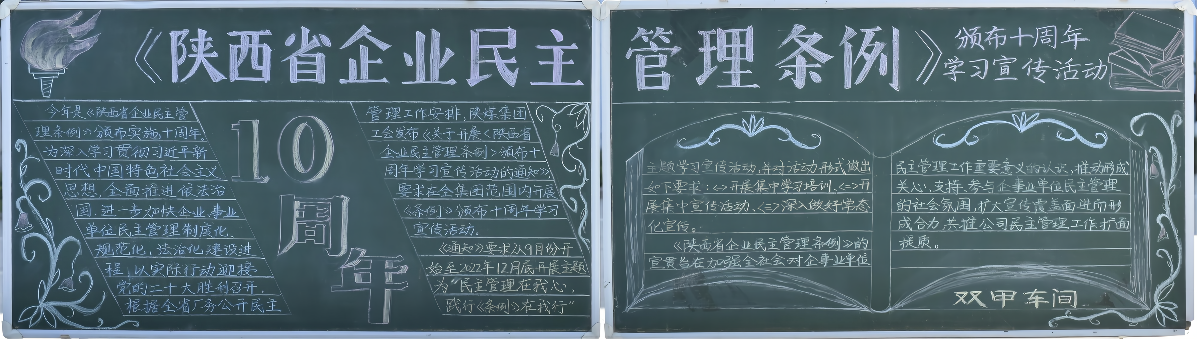 《陕西省企业民主管理条例》
颁布十周年
学习宣传活动
今年是《陕西省企业民主管
理条例》颁布实施十周年,
为深入学习贯彻习近平新
时代中国特色社会主义
思想,全面推进依法治
国,进一步加快企业,事业
单位民主管理制度化,
规范化,法治化建设进
程,以实际行动迎接
党的二十大胜利召开,
根据全省厂务公开民主
10
周
年
管理工作安排,陕煤集团
工会发布《关于开展《陕西省
企业民主管理条例》颁布十
周年学习宣传活动的通知》
要求在全集团范围内开展
《条例》颁布十周年学习
宣传活动.
《通知》要求从9月份开
始至2022年12月底开展主题
为“民主管理在我心,
践行《条例》在我行”
主题学习宣传活动,并对活动形式做出
如下要求:<一>开展集中学习培训、<二>开
展集中宣传活动、<三>深入做好常态
化宣传。
《陕西省企业民主管理条例》的
宣贯旨在加强全社会对企事业单位
民主管理工作重要意义的认识,推动形成
关心,支持,参与企事业单位民主管理
的社会氛围,扩大宣传覆盖面进而形
成合力共推公司民主管理工作扩面
提质。
双甲车间